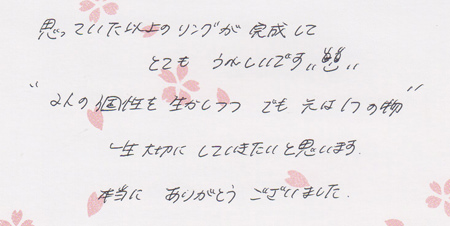 思っていた以上のリングが完成して
とても うれしいです!!
"2人の個性を生かしつつ でも 元は1つの物"
一生大切にしていきたいと思います.
本当に ありがとう ございました.